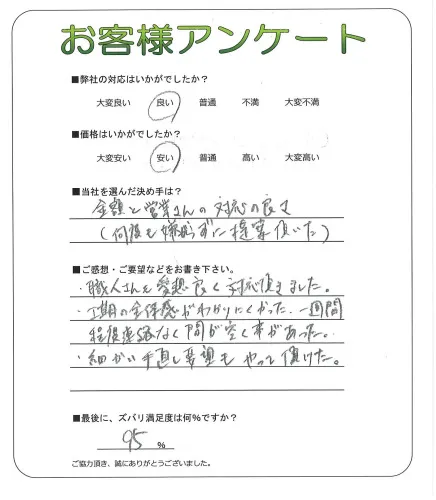 お客様アンケート
■弊社の対応はいかがでしたか？
大変良い 良い 普通 不満 大変不満
■価格はいかがでしたか？
大変安い 安い 普通 高い 大変高い
■当社を選んだ決め手は？
金額と営業さんの対応の良さ
(何度も嫌がらずに提案頂いた)
■ご感想・ご要望などをお書き下さい。
・職人さんも愛想良く対応頂きました。
・工期の全体感がわかりにくかった。一週間
程度連絡なく間が空く事があった。
・細かい手直し要望もやって頂けた。
■最後に、ズバリ満足度は何%ですか？
95 %
ご協力頂き、誠にありがとうございました。